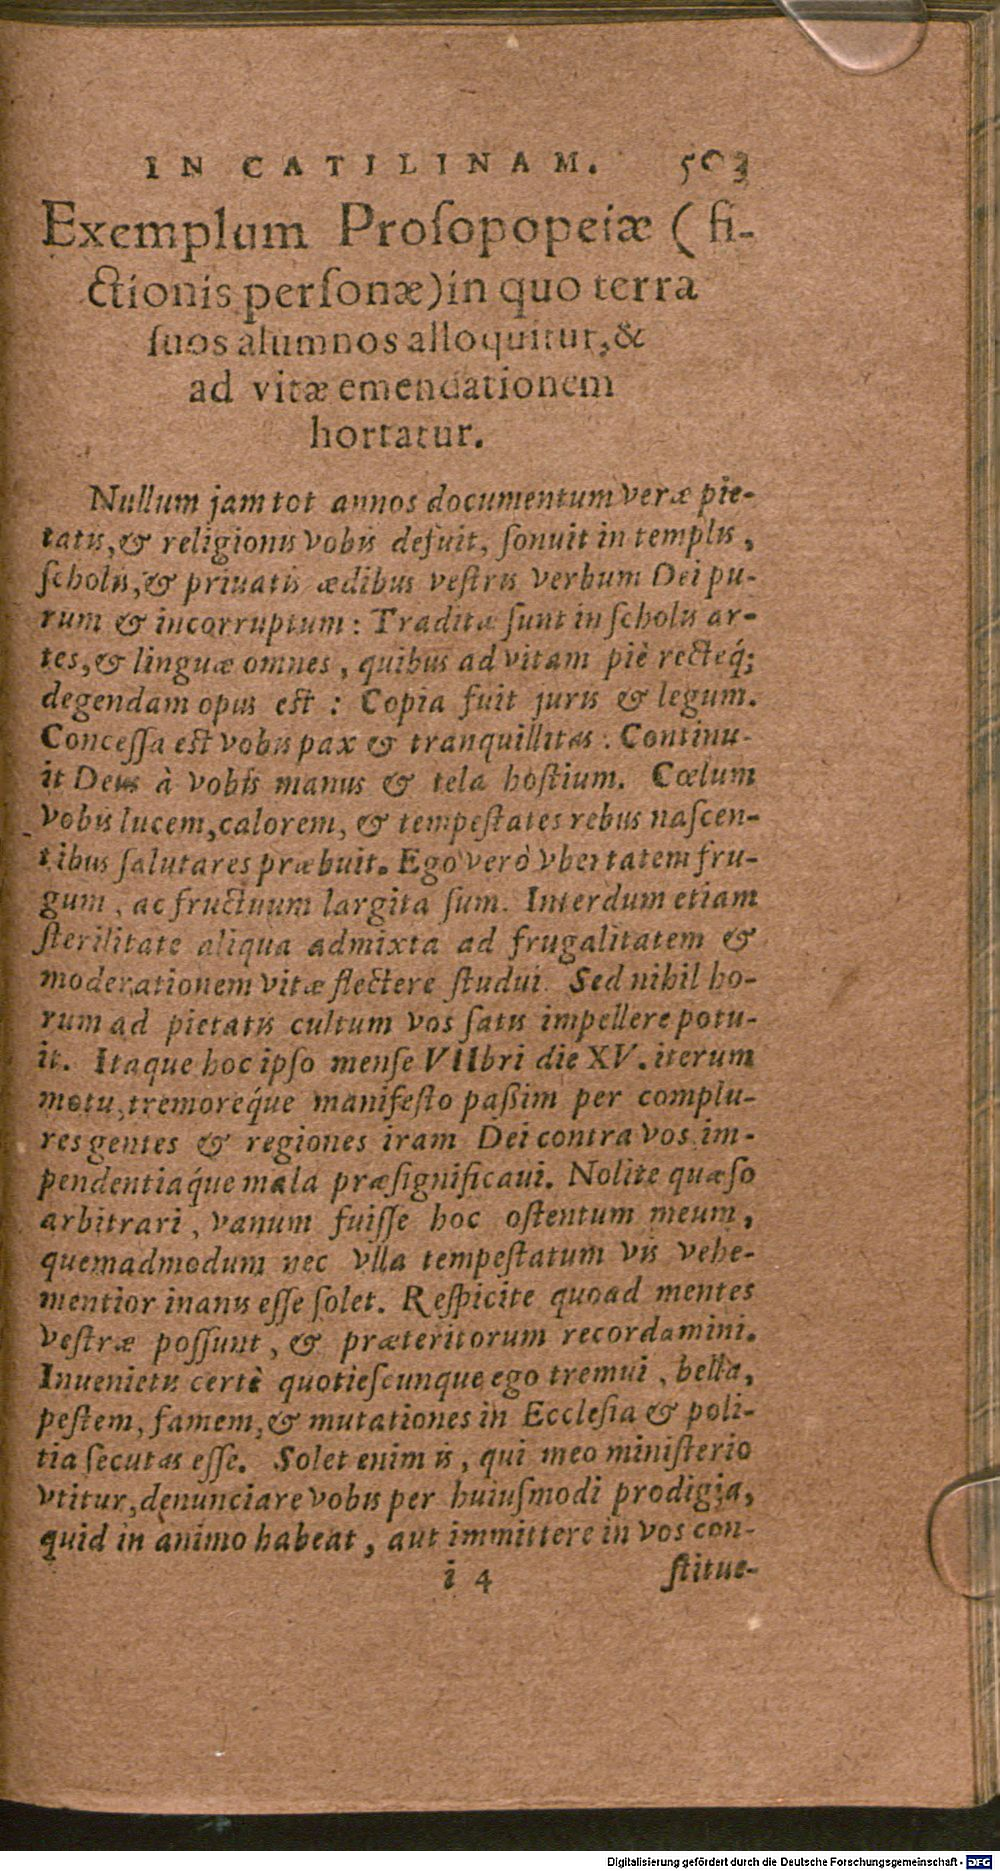 IN CATILINAM. 503
Exemplum Prosopopeiæ (fi-
ctionis personæ) in quo terra
suos alumnos alloquitur, &
ad vitæ emendationem
hortatur.
Nullum jam tot annos documentum veræ pie-
tatis, & religionis vobis defuit, sonuit in templis,
scholis, & priuatis ædibus vestris verbum Dei pu-
rum & incorruptum: Traditæ sunt in scholis ar-
tes, & linguæ omnes, quibus ad vitam piè rectéq;
degendam opus est: Copia fuit juris & legum.
Concessa est vobis pax & tranquillitas: Continu-
it Deus à vobis manus & tela hostium. Cœlum
vobis lucem, calorem, & tempestates rebus nascen-
tibus salutares præbuit. Ego verò vbertatem fru-
gum, ac fructuum largita sum. Interdum etiam
sterilitate aliqua admixta ad frugalitatem &
moderationem vitæ flectere studui. Sed nihil ho-
rum ad pietatis cultum vos satis impellere potu-
it. Itaque hoc ipso mense VIIbri die XV. iterum
motu, tremoreq́ue manifesto passim per complu-
res gentes & regiones iram Dei contra vos im-
pendentiaq́ue mala præsignificaui. Nolite quæso
arbitrari, vanum fuisse hoc ostentum meum,
quemadmodum nec vlla tempestatum vis vehe-
mentior inanis esse solet. Respicite quoad mentes
vestræ possunt, & præteritorum recordamini.
Inuenietis certè quotiescunque ego tremui, bella,
pestem, famem, & mutationes in Ecclesia & poli-
tia secutas esse. Solet enim is, qui meo ministerio
vtitur, denunciare vobis per huiusmodi prodigia,
quid in animo habeat, aut immittere in vos con-
i 4 stitue-
Digitalisierung gefördert durch die Deutsche Forschungsgemeinschaft - DFG